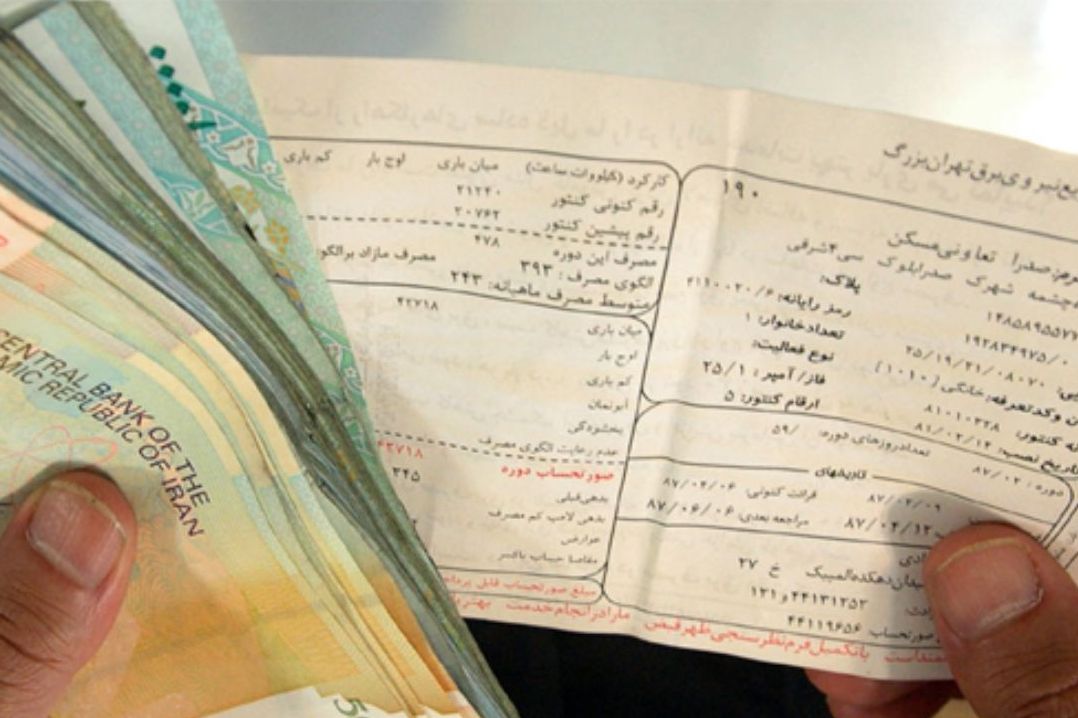 CENTRAL BANK OF THE
ISLAMIC REPUBLIC OF IRAN
5
برق تهران بزرگ
۱۹۰
صدرا تعاونی مسکن
چشمه شهرک صدرا بلوک سی ۴ شرقی
پلاک:
رمز رایانه: ۴۱۱۰۰۲۰/۶
تعداد خانوار: ۱
۱۹۲۸۳۴۹۷۵/۰
نوع فعالیت:
۲۵/۱۹/۳۱/۰۸۰۷۰
فاز/ آمپر: ۲۵/۱
کد تعرفه: خانگی (۱۰۱۰)
ارقام کنتور: ۵
کنتور: ۸۱۰۱۰۳۲۸
تاریخ نصب: ۸۱/۰۲/۱۴
کارکرد (کیلووات ساعت) میان باری اوج بار کم باری
رقم کنونی کنتور ۲۱۲۴۰
رقم پیشین کنتور ۲۰۷۶۲
مصرف این دوره ۴۷۸
الگوی مصرف: ۳۹۳ مصرف مازاد بر الگو
متوسط مصرف ماهیانه: ۲۴۳
میان باری ۴۲۷۱۸
اوج بار
کم باری
آبونمان
بخشودگی
عدم رعایت الگوی مصرف
صورتحساب دوره ۴۲۷۱۸
بدهی قبلی ۳۴۵
بدهی لامپ کم مصرف
عوارض
مبلغ صورتحساب قابل پرداخت
دوره: ۸۷/۰۲ تعداد روزهای دوره: ۵۹/
تاریخهای
۸۷/۰۲/۰۹ قرائت کنونی: ۸۷/۰۴/۰۶
۸۷/۰۴/۱۲ مراجعه بعدی: ۸۷/۰۶/۰۶
میدان دهکده المپیک خ ۲۷
۴۴۱۳۱۲۵۲ و ۱۲۱
صورتحساب: ۴۴۱۱۹۶۵۶
با تکمیل فرم نظرسنجی ظهر قبض ما را در انجام خدمت بهتر